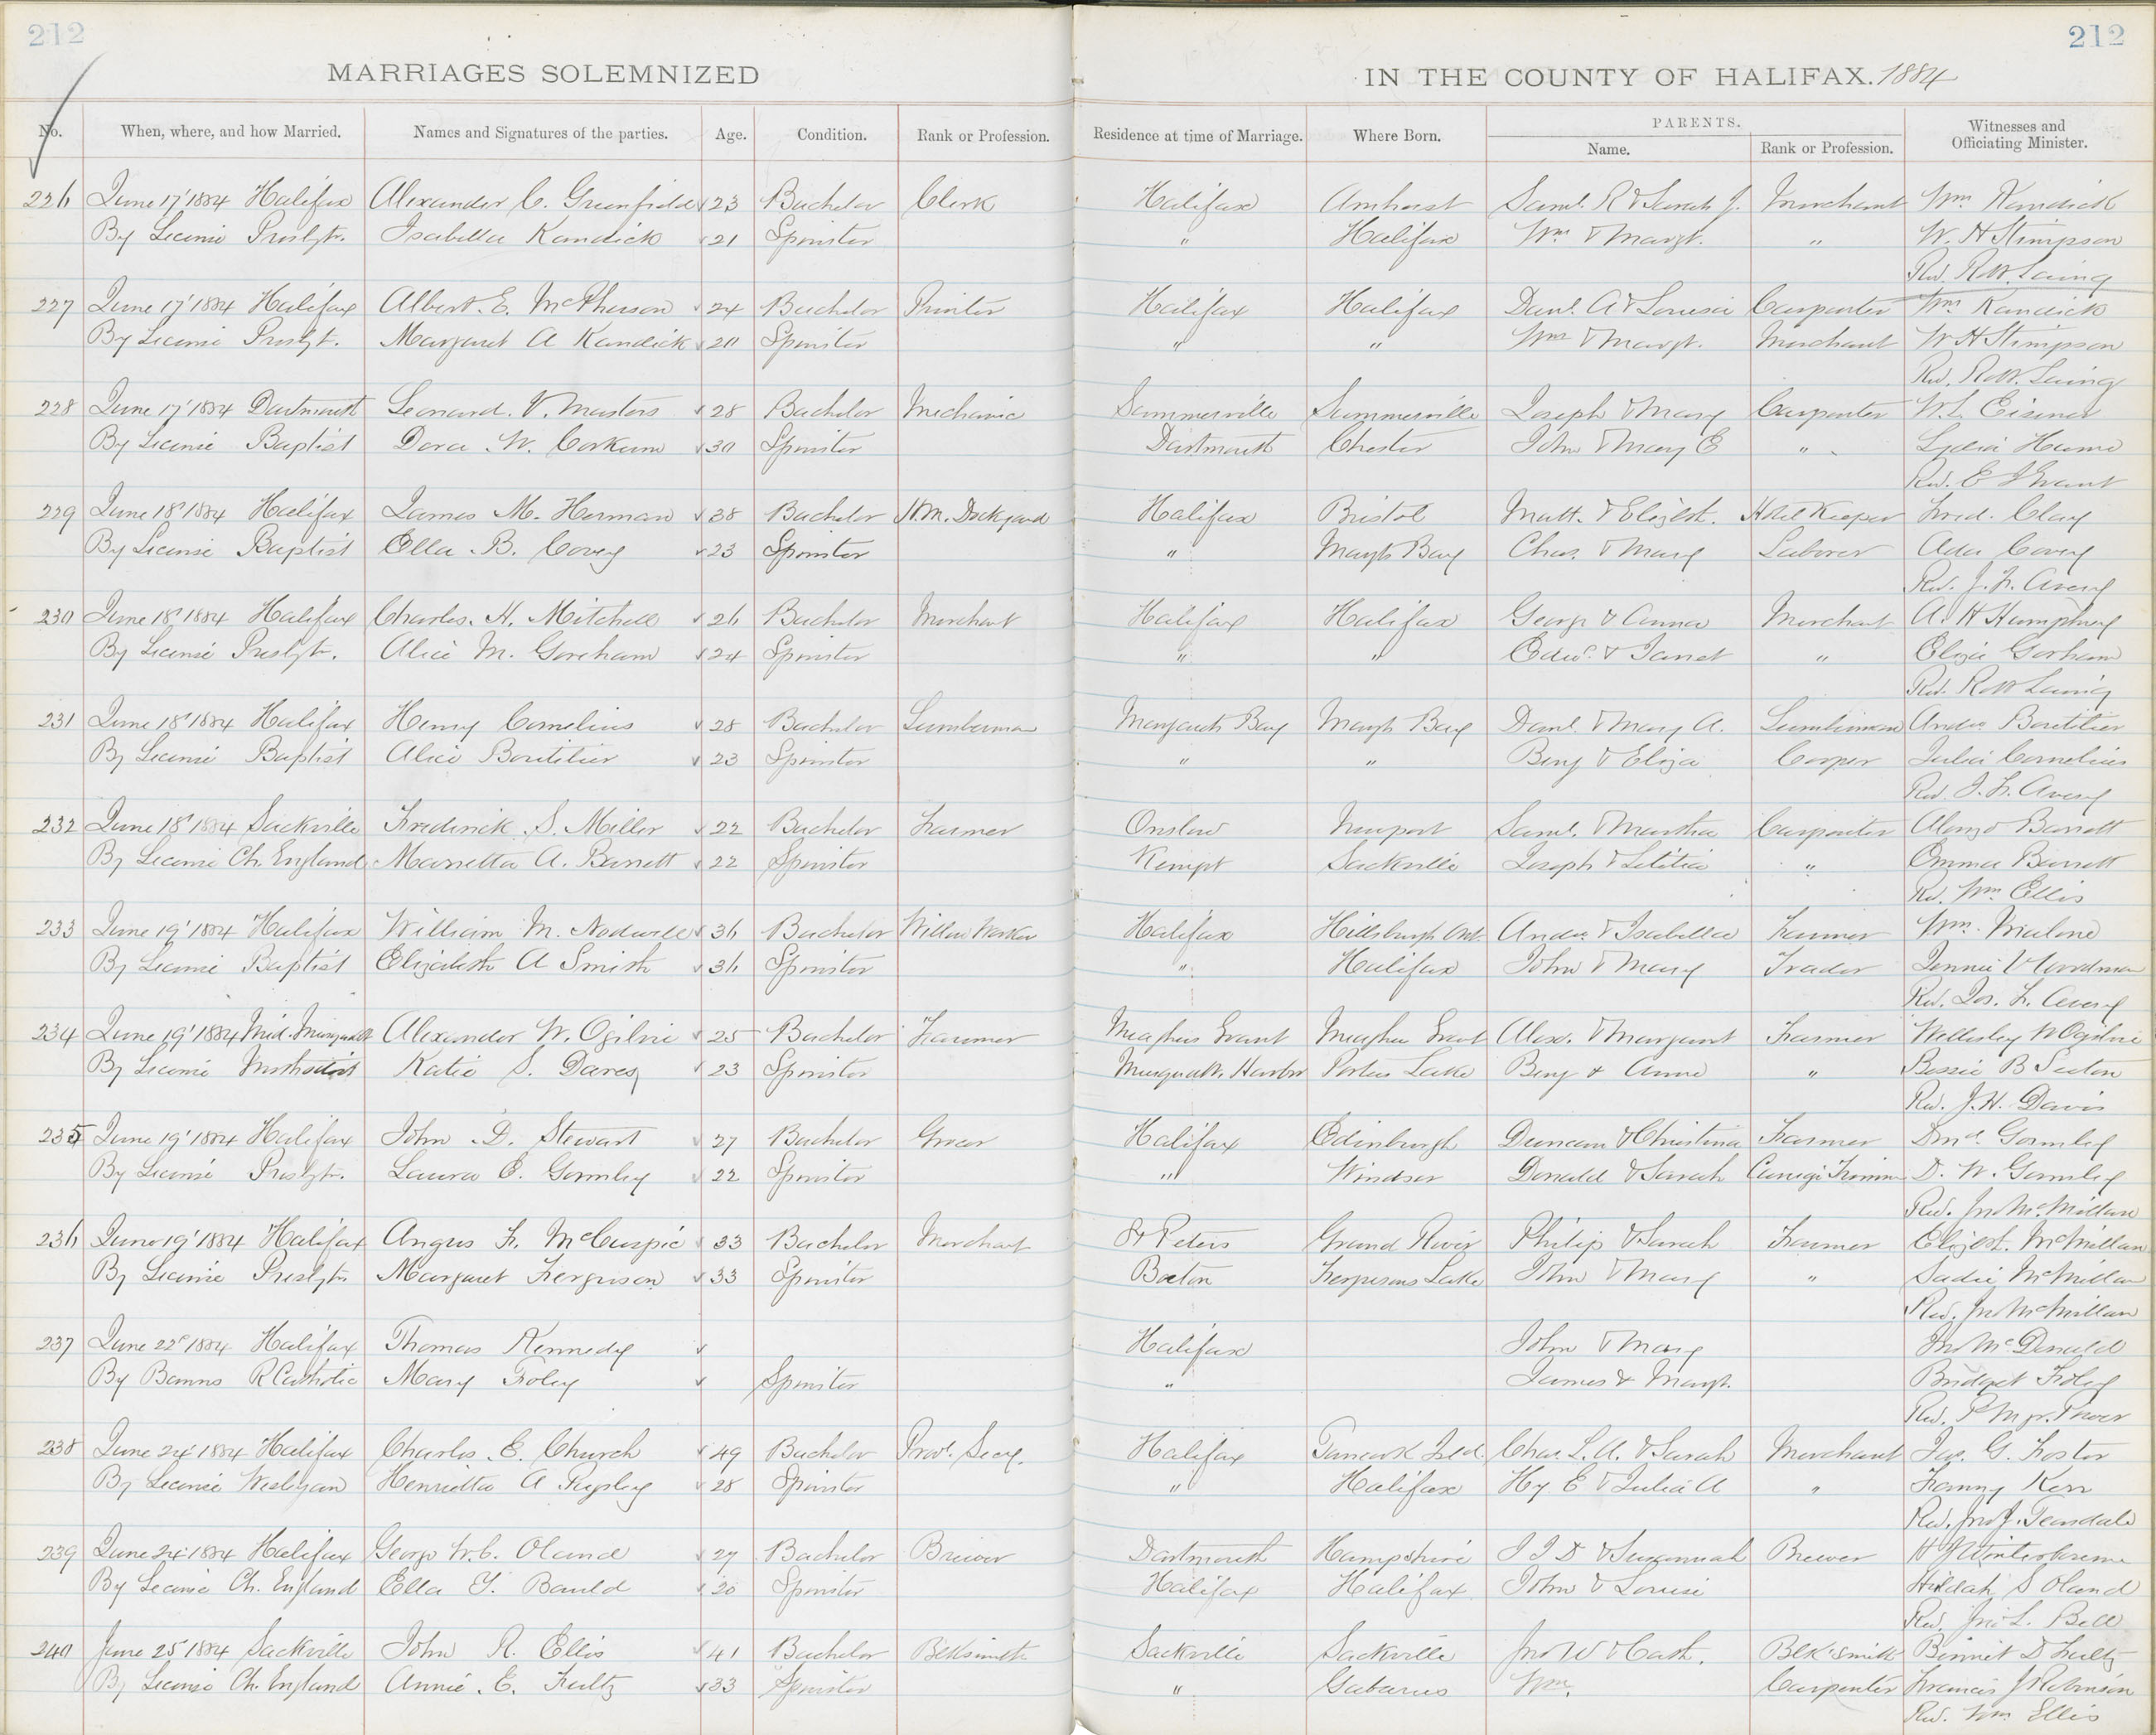 212 212
MARRIAGES SOLEMNIZED IN THE COUNTY OF HALIFAX. 1884
No. When, where, and how Married. Names and Signatures of the parties. Age. Condition. Rank or Profession. Residence at time of Marriage. Where Born. PARENTS. Name. Rank or Profession. Witnesses and Officiating Minister.
226 June 17' 1884 Halifax Alexander C. Greenfield 23 Bachelor Clerk Halifax Amherst Saml. R & Sarah J. Merchant Wm Kandick
By License Presbyt. Isabella Kandick 21 Spinster " Halifax Wm & Margt. " W. H Stimpson
Rev. R W Laing
227 June 17' 1884 Halifax Albert. E. McPherson 24 Bachelor Printer Halifax Halifax Danl. A & Louisa Carpenter Wm Kandick
By License Presbyt. Margaret A Kandick 20 Spinster " " Wm & Margt. Merchant W H Stimpson
Rev. R.W. Laing
228 June 17' 1884 Dartmouth Leonard. V. Masters 28 Bachelor Mechanic Summerville Summerville Joseph & Mary Carpenter W. L Eisenor
By License Baptist Dora. W. Corkum 30 Spinster Dartmouth Chester John & Mary E " Lydia Hume
Rev. E J Grant
229 June 18' 1884 Halifax James M. Herman 38 Bachelor H.M. Dockyard Halifax Bristol Matt. & Elizbt. Hotel Keeper Fred. Clay
By License Baptist Ella. B. Covey 23 Spinster " Margts Bay Chas. & Mary Laborer Ada Covey
Rev. J. F. Avery
230 June 18' 1884 Halifax Charles. H. Mitchell 26 Bachelor Merchant Halifax Halifax George & Anna Merchant A. H Humphrey
By License Presbyt. Alice M. Goreham 24 Spinster " " Edwd. & Janet " Eliza Gorham
Rev. R W Laing
231 June 18' 1884 Halifax Henry Cornelius 28 Bachelor Lumberman Margarets Bay Margts Bay Danl. & Mary A. Lumberman Andw. Boutilier
By License Baptist Alice Boutilier 23 Spinster " " Benj & Eliza Cooper Julia Cornelius
Rev. J. F. Avery
232 June 18' 1884 Sackville Frederick. S. Miller 22 Bachelor Farmer Onslow Newport Saml. & Martha Carpenter Alonzo Barrett
By License Ch. England Marietta A. Barrett 22 Spinster Kempt Sackville Joseph & Letitia " Emma Barrett
Rev. Wm. Ellis
233 June 19' 1884 Halifax William M. Nodwell 36 Bachelor Willow Worker Halifax Hillsburgh Ont. Andw. & Isabella Farmer Wm. Malone
By License Baptist Elizabeth A Smith 36 Spinster " Halifax John & Mary Trader Jennie V Woodman
Rev. Jos. F. Avery
234 June 19' 1884 Mid. Musquodt. Alexander W. Ogilvie 25 Bachelor Farmer Meaghers Grant Meagher Grant Alexr. & Margaret Farmer Wellesley W Ogilvie
By License Methodist Katie S. Davey 23 Spinster Musquodt. Harbor Porters Lake Benj & Anne " Bessie B Seeton
Rev. J. H. Davis
235 June 19' 1884 Halifax John. D. Stewart 27 Bachelor Grocer Halifax Edinburgh Duncan & Christina Farmer Dnd. Gormley
By License Presbyt. Laura E. Gormley 22 Spinster " Windsor Donald & Sarah Carriage Trimmer D. W. Gormley
Rev. Jno McMillan
236 June 19' 1884 Halifax Angus F. McCuspic 33 Bachelor Merchant St Peters Grand River Philip & Sarah Farmer Elizbt. McMillan
By License Presbytn. Margaret Ferguson 33 Spinster Boston Fergusons Lake John & Mary " Sadie McMillan
Rev. Jno McMillan
237 June 22d 1884 Halifax Thomas Kennedy Halifax John & Mary Jno McDonald
By Banns R Catholic Mary Foley Spinster " James & Margt. Bridget Foley
Rev. P Mgr. Power
238 June 24' 1884 Halifax Charles. E. Church 49 Bachelor Provl. Secy. Halifax Tancook Isld. Chas. L. A. & Sarah Merchant Jas. G. Foster
By License Wesleyan Henrietta A Pugsley 28 Spinster " Halifax Hy E & Julia A " Fanny Kerr
Rev. Jno J. Teasdale
239 June 24' 1884 Halifax George W. C. Oland 29 Bachelor Brewer Dartmouth Hampshire J J D & Susannah Brewer H J Winterbourne
By License Ch. England Ella Y. Bauld 20 Spinster Halifax Halifax John & Louise Huldah S Oland
Rev. Jno L. Bell
240 June 25' 1884 Sackville John R. Ellis 41 Bachelor Blksmith Sackville Sackville Jno W & Cath. Blk.smith Bennet D Fultz
By License Ch. England Annie. E. Fultz 33 Spinster " Gabarus Wm. Carpenter Francis J Robinson
Rev. Wm Ellis